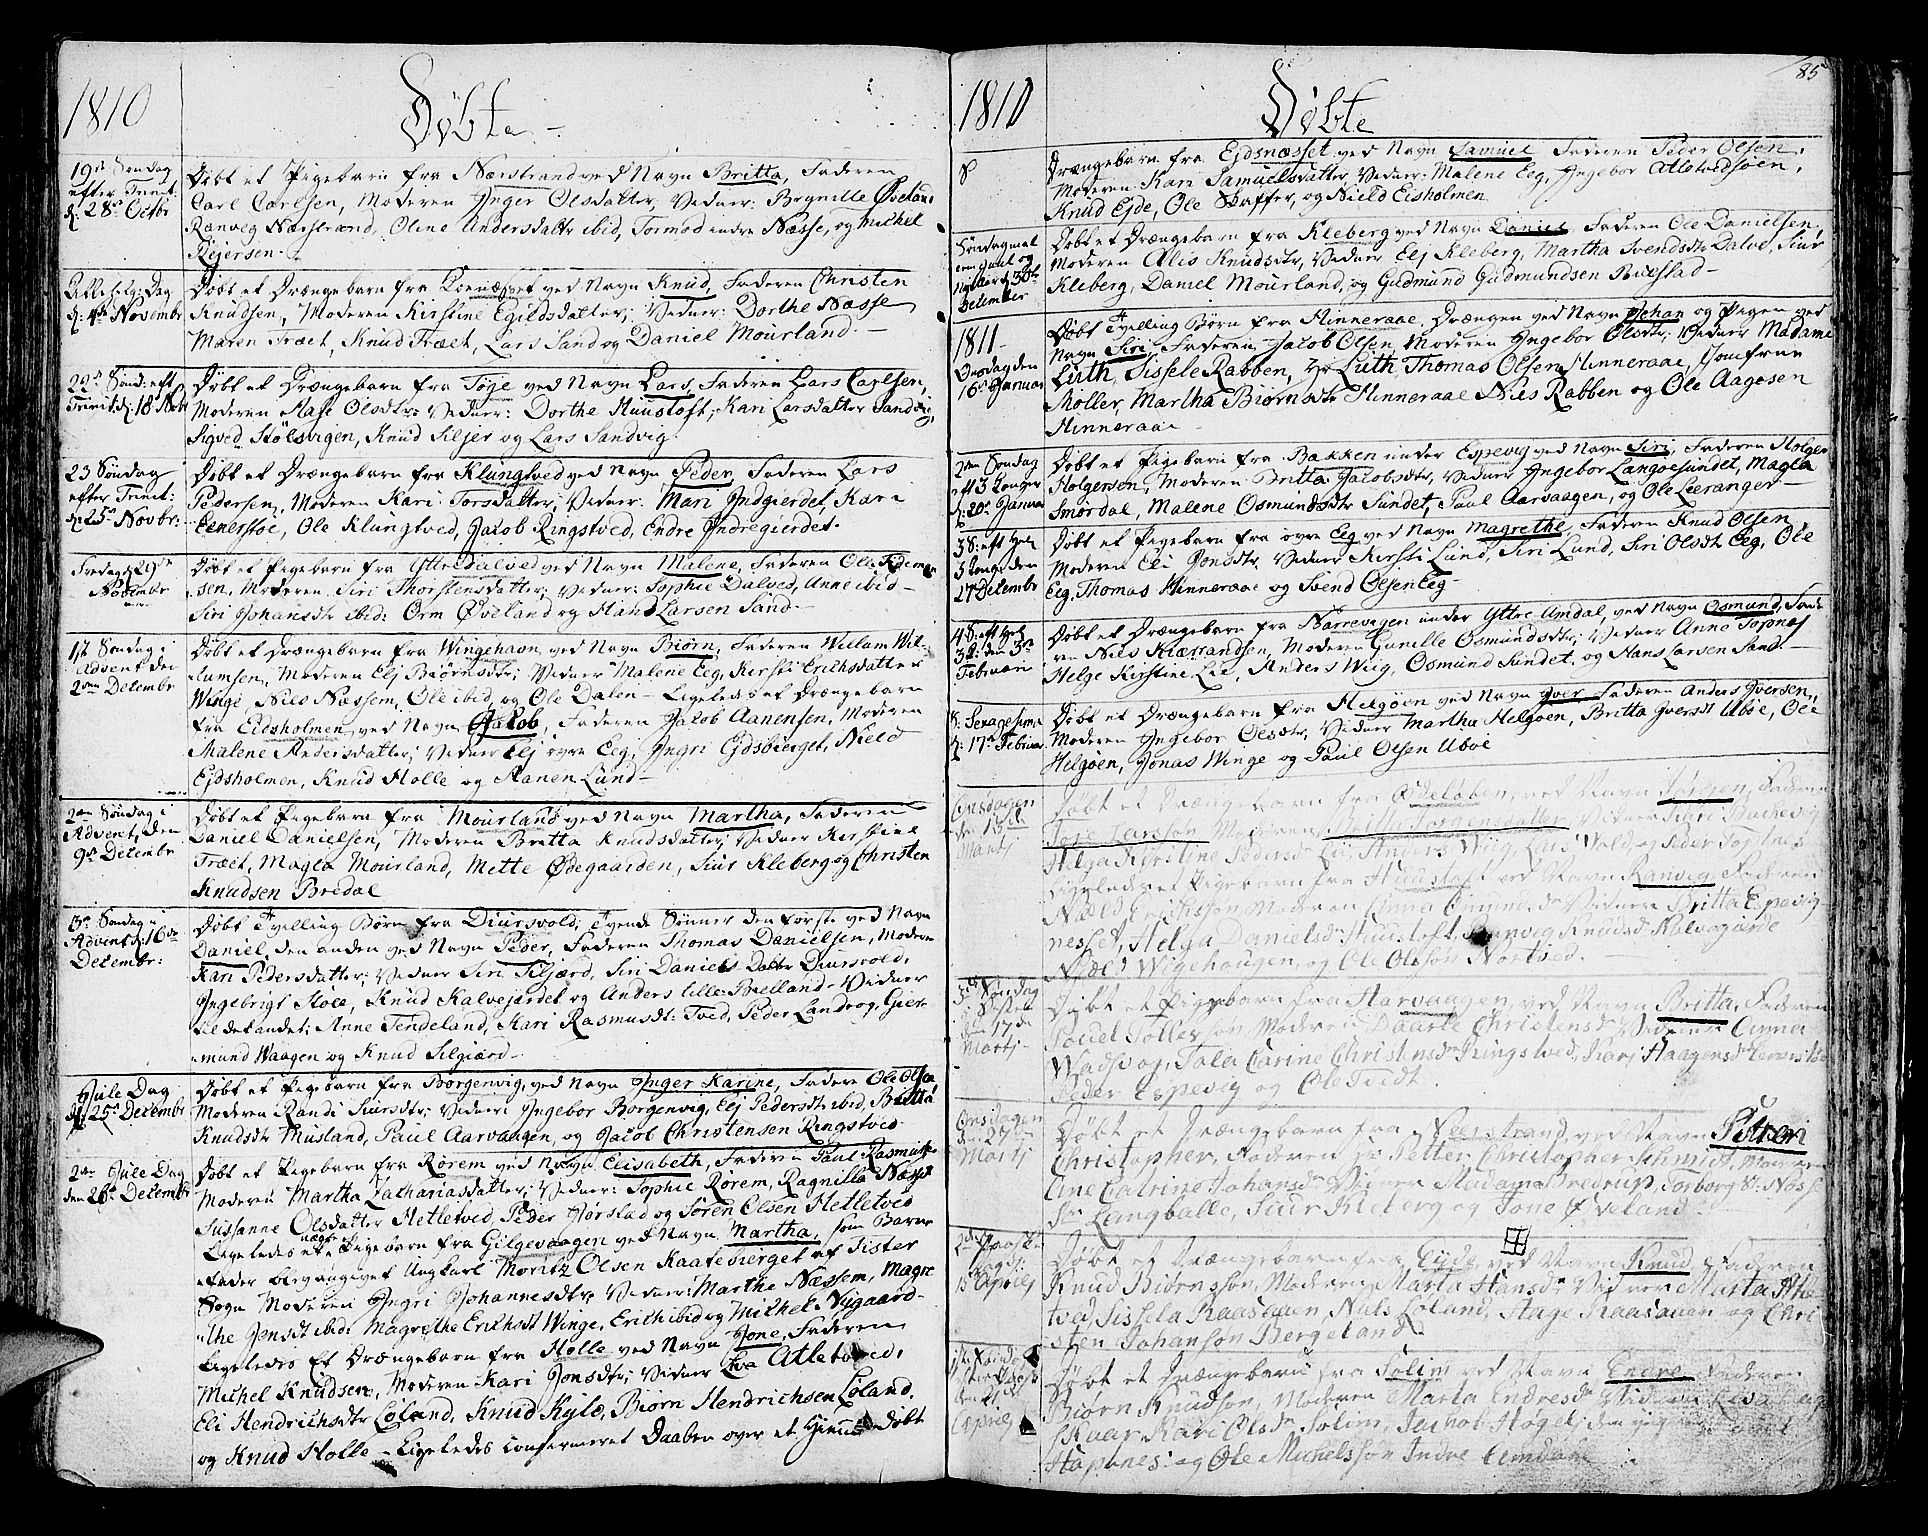 1810
Döbte
19de Söndag
efter Trinit:
d: 28de Octbr
Döbt et Pigebarn fra Nærstrand ved Navn Britta, Faderen
Carl Carlsen, Moderen Inger Olsdatter, Vidner: Brynille Øveland
Ranveg Nærstrand, Oline Andersdattr ibid, Tormod indre Næsse, og Mickel
Rejersen.
Allehelg: Dag
d: 4de Novembr
Döbt et Drængebarn fra ved Navn Knud, Faderen Christen
Knudsen, Moderen Kirstine Egildsdatter; Vidner: Dorthe Næsse
Maren Træet, Knud Træet, Lars Sand og Daniel Mourland.
22de Sönd: eft
Trinit: d: 18 Novbr
Döbt et Drængebarn fra Töje ved Navn Lars, Faderen Lars Carlsen,
Moderen Aase Olsdtr: Vidner: Dorthe Huustoft, Kari Larsdatter Sandvig,
Sigved Stölsvigen, Knud Siljer og Lars Sandvig.
23 Söndag
efter Trinit:
d: 25de Novbr:
Döbt et Drængebarn fra Klungtved ved Navn Peder, Faderen Lars
Pedersen, Moderen Kari Torsdatter, Vidner. Mari Indgierdet, Kari
Eenerstöe, Ole Klungtved, Jacob Ringstved, Endre Indregierdet.
Fredag d: 29de
Novembr
Döbt et Pigebarn fra Yttredalved ved Navn Malene, Faderen Ole
sen, Moderen Siri Thorstensdatter; Vidner: Sophie Dalved, Anne ibid
Siri Johansdtr ibid: Orm Øveland og Hans Larsen Sand.
1st Söndag i
Advent den
2den Decembr
Döbt et Drængebarn fra Wingehavn ved Navn Biörn, Faderen Willam Wil-
lumsen, Moderen Elj Biörnsdtr; Vidner Malene Eeg, Kersti Eriksdatter
Winge, Niels Næssem, Ole ibid, og Ole Dalen - Ligeledes et Drængebarn
fra Eidsholmen ved Navn Jakob, Faderen Jacob Aanensen, Moderen
Malene Andersdatter; Vidner Elj övre Eeg, Ingri Eidsbierget, Nield
Ejdsholmen, Knud Holle og Aanen Lund
2den Söndag i
Advent, den
9de Decembr
Döbt et Pigebarn fra Mourland ved Navn Martha, Faderen
Daniel Danielsen, Moderen Britta Knudsdatter; Vidner Kirstine
Træet, Magla Mourland, Mette Ødegaarden, Siur Kleberg og Christen
Knudsen Bredal
3de Söndag i
Advent d: 16de
Decembr:
Döbt Tvilling Börn fra Diursvold, Tvende Sönner den förste ved Navn
Daniel, den anden ved Navn Peder, Faderen Thomas Danielsen, Moderen
Kari Pedersdatter; Vidner Siri Siljord, Siri Daniels Datter Diursvold,
Ingebrigt Hole, Knud Kalvejordet og Anders lille Bielland. Vidner
til det andet; Anne Tendeland, Kari Rasmusdt: Tved, Peder Landrog, Gier-
mund Waagen og Knud Silgiord
Jule Dag
d: 25de Decembr
Döbt et Pigebarn fra Borgenvig, ved Navn Inger Karine, Fadere Ole Olsen
Moderen Randi Siursdtr; Vidner: Ingebor Borgenvig, Elj Pedersdtr ibid, Britta
Knudsdtr Musland, Paul Aarvaagen, og Jacob Christensen Ringstved
2den Jule Dag
den 26de Decembr
Döbt et Pigebarn fra Rörem ved Navn Elisabeth, Faderen Paul Rasmus
Moderen Martha Zachariasdatter; Vidner: Sophie Rörem, Ragnilla Næsse
Sussanne Olsdatter Hetletved, Peder Hörstad og Sören Olsen Hetletved
Ligeledes et uægte Pigebarn fra Gilgevaagen ved Navn Martha, som Barne
fader blev angivet Ungkarl Moritz Olsen Kaateberget af Tister
Sogn Moderen Ingri Johannesdtr; Vidner: Marthe Næssem, Magre
the Jonsdt ibid: Magrethe Erichsdt Winge, Erich ibid og Mickel Nygaard
Ligeledes Et Drængebarn fra Holle ved Navn Jone, Faderen
Michel Knudsen, Moderen Kari Jonsdtr; Vidner Eva Atletved,
Eli Hendrichsdtr Löland, Knud Kylö, Biörn Hendrichsen Löland,
og Knud Holle - Ligeledes confermeret Daaben over et Hjemme döbt
1810
Döbte
85
Drængebarn fra Ejdsnæsset ved Navn Samuel Faderen Peder Olsen,
Moderen Kari Samuelsdatter Vidner: Malene Eeg, Ingebor Atletvedsöen,
Knud Ejde, Ole Skaffer, og Nield Eisholmen
Decembr
Döbt et Drængebarn fra Kleberg ved Navn Daniel Faderen Ole Danielsen,
Moderen Alis Knudsdtr, Vidner Elj Kleberg, Martha Svendsdtr Dalve, Siur
Kleberg, Daniel Mourland, og Gudmund Gudmundsen Buestad
1811
Onsdag den
16de Januar
Döbt Tvilling Börn fra Hinneraae Drængen ved Navn Johan og Pigen ved
Navn Siri, Faderen Jacob Olsen Moderen Ingebor Olsdtr; Vidner Madame
Luth, Sissele Rabben, Hr Luth, Thomas Olsen Hinneraae, Jomfrue
Möller, Martha Biörnsdtr Hinneraae Niels Rabben og Ole Aagesen
Hinneraae
2den Söndag
eft 3 Konger
d: 20de Janua
Döbt et Pigebarn fra Bakken under Espevig ved Navn Siri, Faderen Holger
Holgersen, Moderen Britta Jacobsdtr, Vidner Ingebor Langøesundet, Magla
Smördal, Malene Osmundsdtr Sundet, Paul Aarvaagen, og Ole Leeranger
3 S: eft Hel
3 Konge den
27 Decembr
Döbt et Pigebarn fra övre Eeg ved Navn Magrethe, Faderen Knud Olsen
Moderen Eli Jonsdtr, Vidner Kirsti Lund, Siri Lund, Siri Olsdt Eeg, Ole
Eeg, Thomas Hinneraae og Svend Olsen Eeg
4 S: eft Hel
3 K: den 3de
Februari
Döbt et Drængebarn fra Narrevigen under Yttre Amdal, ved Navn Osmund, Fade
ren Niels Kiærrandsen, Moderen Gunille Osmundsdtr; Vidner Anne Topnes
Helge Kirstine Lie, Anders Wiig, Osmund Sundet, og Hans Larsen Sand
S: Sexagesima
d: 17de Februar
Döbt et Drængebarn fra Helgöen ved Navn Iver, Faderen Anders Iversen,
Moderen Ingebor Olsdtr, Vidner Martha Helgöen, Britta Iversdt Uböe, Ole
Helgöen, Jonas Winge og Paul Olsen Uböe
Onsdagen
den 13de
Martj
Döbt et Drængebarn fra ved Navn Jörgen, Faderen
Tore Larsson Moderen Jorgensdatter, Vidner Kari Backevig
Helga Kirstine Pedersd: Lii Anders Wiig, Wold, og Peder Topnes
Ligeledes et Pigebarn fra Huustoft ved Navn Ranvig, Faderen
Næld Ericksson Moderen Anna Omunds d: Vidnere Britta Espevig-
nesset, Helga Danielsd: Huustoft, Ranveig Knudsd: Kalvegiorde
Næld Wigehaugen, og Ole Olsson Nortved.
Söndag
i Fasten
den 17de
Martj
Döbt et Pigebarn fra Harvaagen, ved Navn Britta, Faderen
Povel Tollesson Moderen Daarte Christensd: Vidnere Anna
Wadsvog, Tala Carine Christensd: Ringstved, Kari Haagensd:
Peder Espevig og Ole Tvedt.
Onsdagen
den 27de
Martj
Döbt et Drængebarn fra Neerstrand, ved Navn Petter
Christopher, Faderen Petter Christopher Schmidt, Moderen
Ane Catrine Johansd: Vidnere Madame Bredrup, Torborg Næsse
Langballe, Siur Kleberg og Tone Øveland.
2den Paaske
dag d:
15 Aprilj
Döbt et Drængebarn fra Eiide ved Navn Knud, Faderen
Knud Biörnsson, Moderen Marta Hansd: Vidnere Marta Atle
tved, Sissela Raasauen, Nils Löland, Aage Raasauen og Chri
sten Johanson Bergeland.
den 21de
Aprilj
Döbt et Drængebarn fra Solim ved Navn Endre Faderen
Biörn Knudson, Moderen Marta Endresd: Vidnere
Skaar Kari Olsd: Solim, Jackob Hogel
Hapnnes: og Ole Michelsson Indre Amdal